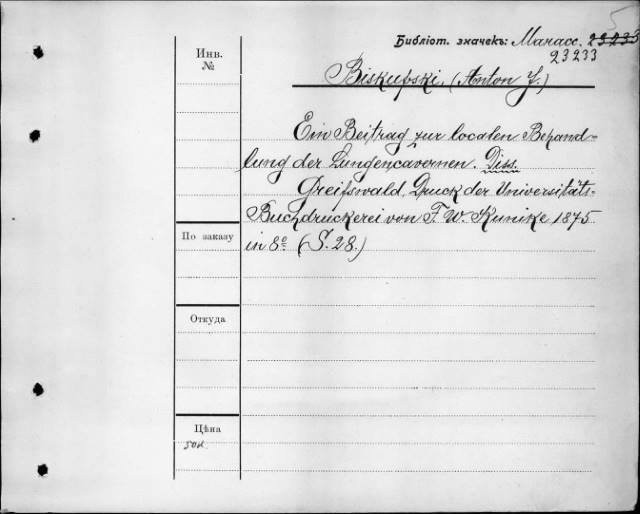 5
Библіот. значекъ: Манасс. 23233
23233
Инв.
№
Biskupski, (Anton J.)
Ein Beitrag zur localen Behand-
lung der Lungencavernen. Diss.
Greifswald, Druck der Universitäts-
Buchdruckerei von F. W. Kunike 1875
in 8º (S. 28.)
По заказу
Откуда
Цѣна
50к